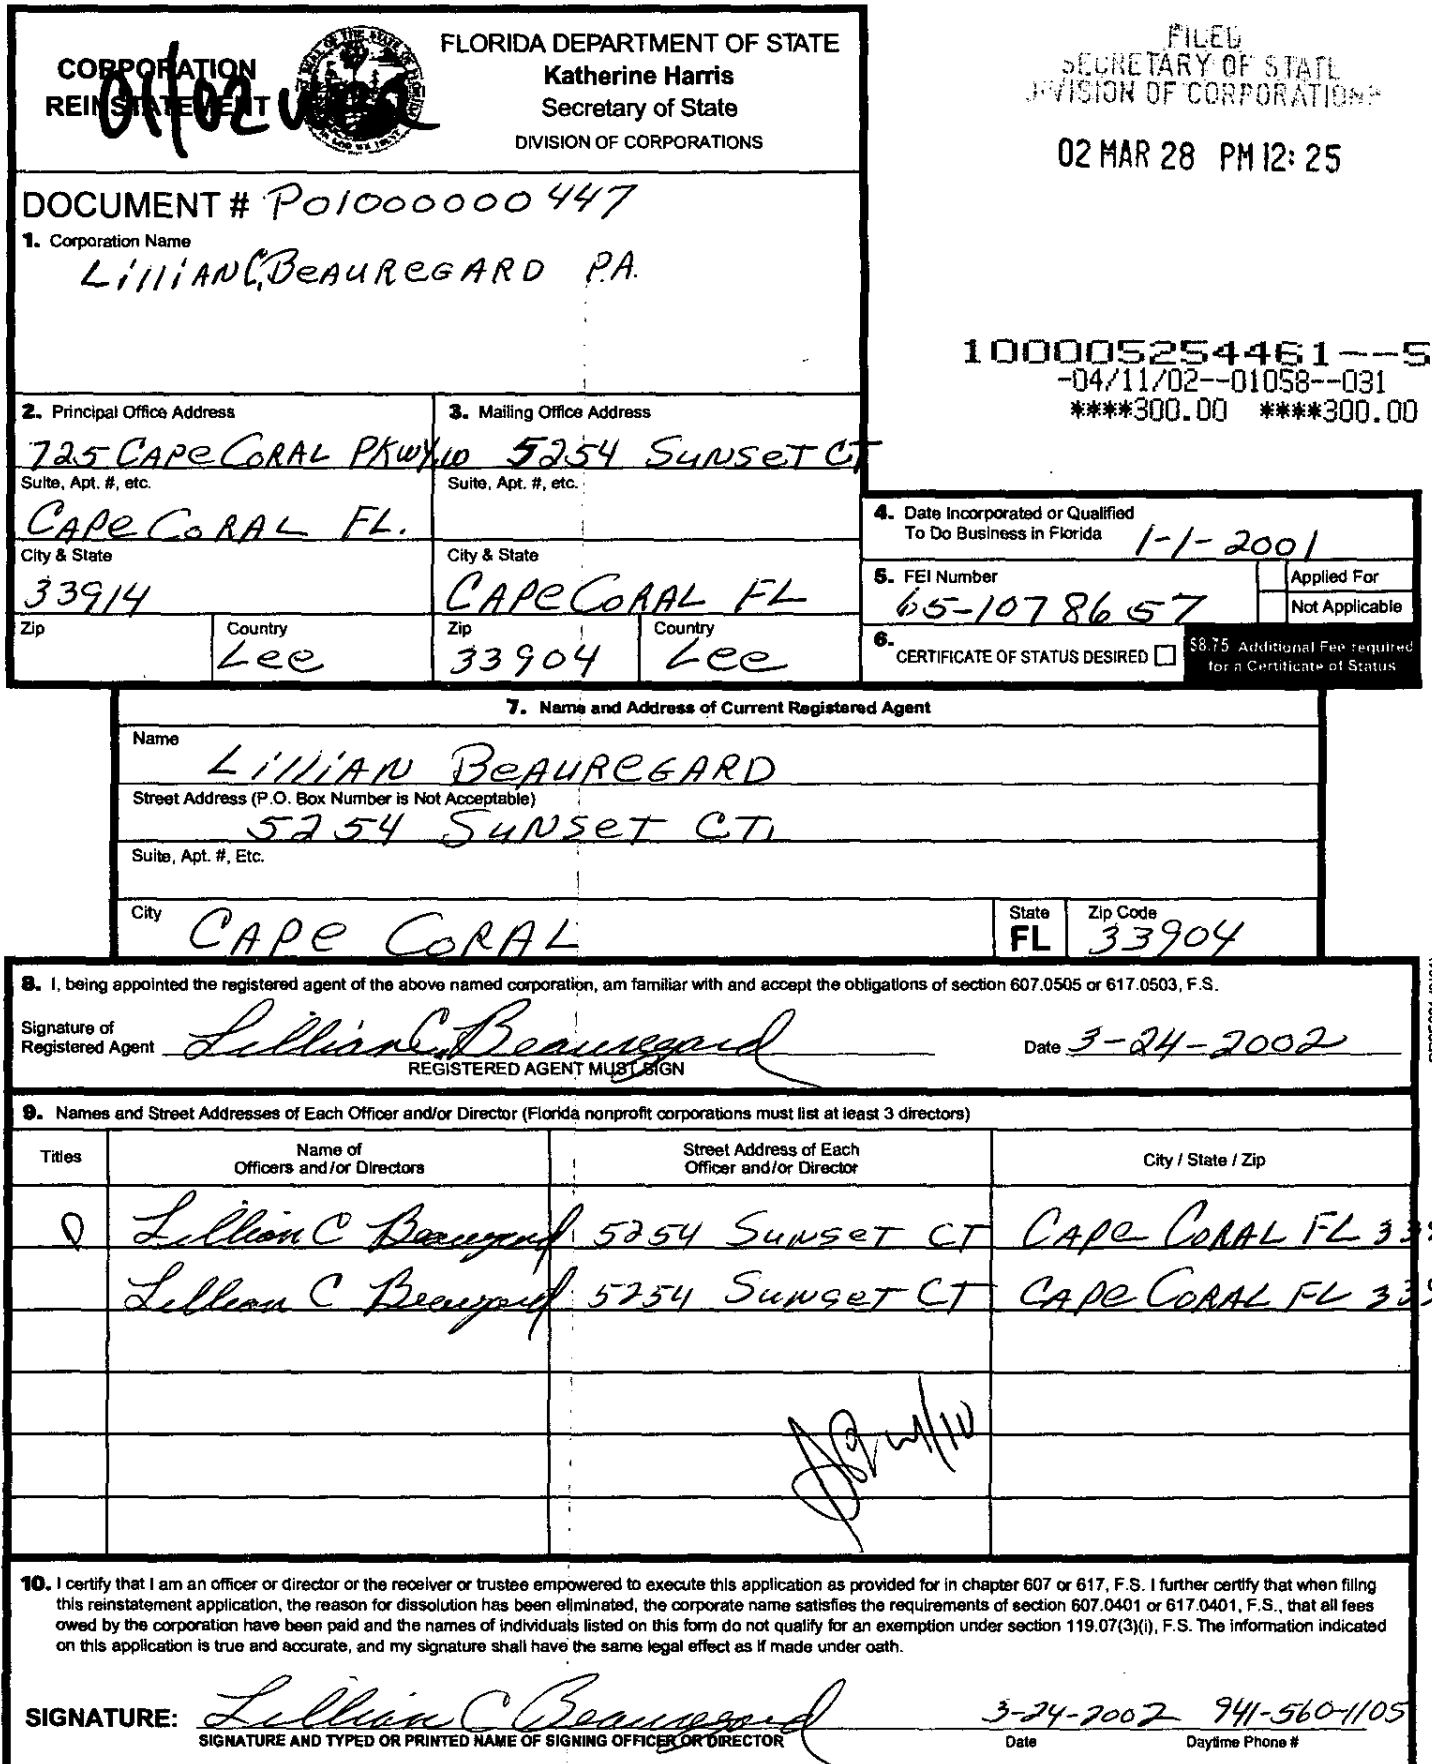 CORPORATION
REINSTATEMENT
01/02
FLORIDA DEPARTMENT OF STATE
Katherine Harris
Secretary of State
DIVISION OF CORPORATIONS
FILED
SECRETARY OF STATE
DIVISION OF CORPORATIONS
02 MAR 28 PM 12:25
DOCUMENT # P01000000447
1. Corporation Name
LilliAN C, BeAUReGARD P.A.
100005254461--5
-04/11/02--01058--031
****300.00 ****300.00
2. Principal Office Address
3. Mailing Office Address
725 CAPe CORAL PKwy W
5254 SuNSeT CT
Suite, Apt. #, etc.
Suite, Apt. #, etc.
CAPe CoRAL FL.
City & State
City & State
33914
CAPe CoRAL FL
Zip
Country
Lee
Zip
33904
Country
Lee
4. Date Incorporated or Qualified
To Do Business in Florida 1-1-2001
5. FEI Number
65-1078657
Applied For
Not Applicable
6. CERTIFICATE OF STATUS DESIRED
$8.75 Additional Fee required
for a Certificate of Status
7. Name and Address of Current Registered Agent
Name
LilliAN BeAUReGARD
Street Address (P.O. Box Number is Not Acceptable)
5254 SuNSeT CT,
Suite, Apt. #, Etc.
City CAPe CoRAL
State
FL
Zip Code
33904
8. I, being appointed the registered agent of the above named corporation, am familiar with and accept the obligations of section 607.0505 or 617.0503, F.S.
Signature of
Registered Agent Lillian C. Beauregard
Date 3-24-2002
REGISTERED AGENT MUST SIGN
9. Names and Street Addresses of Each Officer and/or Director (Florida nonprofit corporations must list at least 3 directors)
Titles
Name of
Officers and/or Directors
Street Address of Each
Officer and/or Director
City / State / Zip
Lillian C Beauregard 5254 SuNSeT CT CAPe CoRAL FL
Lillian C Beauregard 5254 SuNSeT CT CAPe CoRAL FL
10. I certify that I am an officer or director or the receiver or trustee empowered to execute this application as provided for in chapter 607 or 617, F.S. I further certify that when filing
this reinstatement application, the reason for dissolution has been eliminated, the corporate name satisfies the requirements of section 607.0401 or 617.0401, F.S., that all fees
owed by the corporation have been paid and the names of individuals listed on this form do not qualify for an exemption under section 119.07(3)(i), F.S. The information indicated
on this application is true and accurate, and my signature shall have the same legal effect as if made under oath.
SIGNATURE: Lillian C Beauregard 3-24-2002 941-560-1105
SIGNATURE AND TYPED OR PRINTED NAME OF SIGNING OFFICER OR DIRECTOR
Date
Daytime Phone #